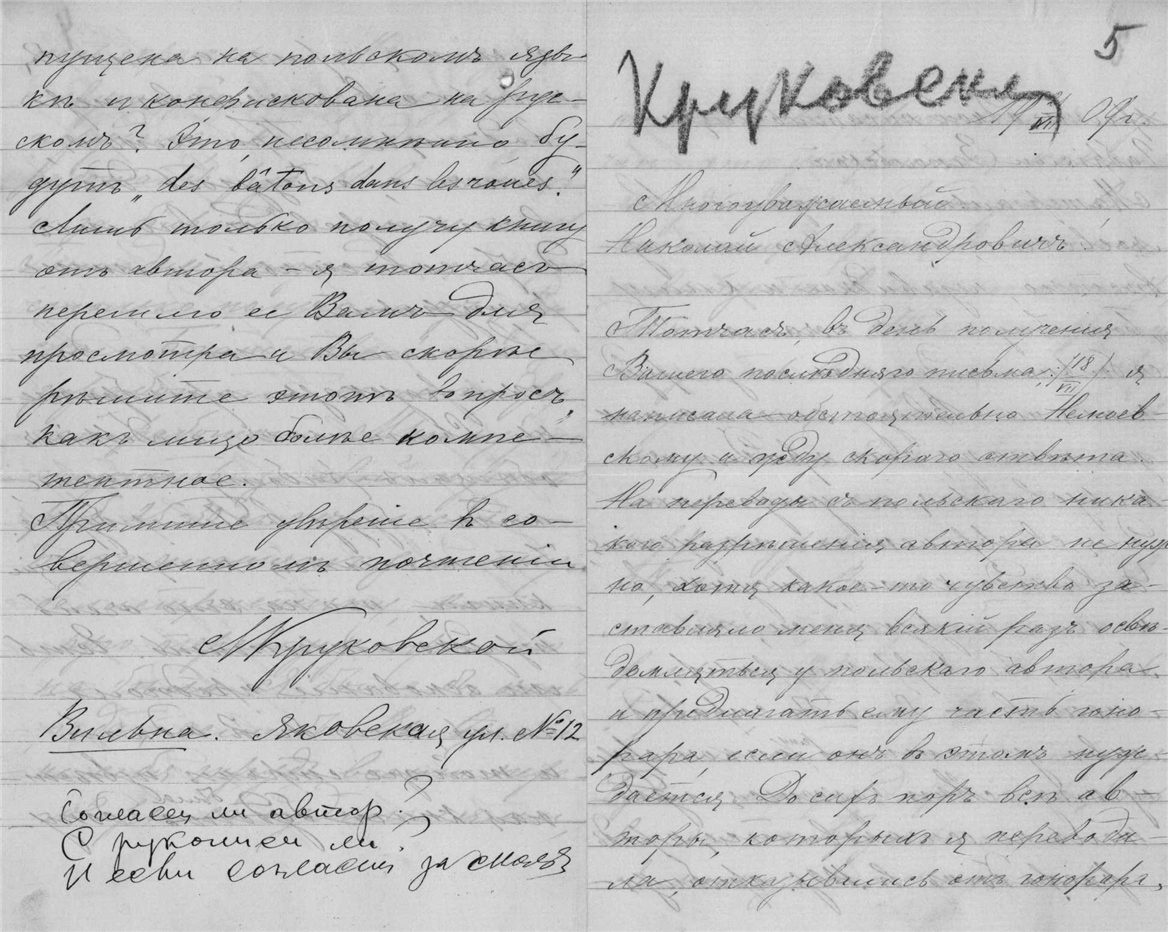 пущена на польскомъ язы-
кѣ и конфискована на рус-
скомъ? Это, несомнѣнно бу-
дутъ „des bâtons dans les roues."
Лишь только получу книгу
отъ автора – я тотчасъ
перешлю ее Вамъ для
просмотра и Вы скорѣе
рѣшите этотъ вопросъ,
какъ лицо болѣе компе-
тентное.
Примите увѣреніе въ со-
вершенномъ почтеніи
МКруковской
Вильна. Яковская, ул. №12
Согласен ли автор?
С рукописи ли?
И если согласен за
5
Круковски
VII 09 г.
Многоуважаемый
Николай Александровичъ!
Тотчасъ, въ день полученія
Вашего послѣдняго письма, /18/VII/ я
написала обстоятельно Немоев-
скому и жду скораго отвѣта.
На переводъ съ польскаго ника
кого разрѣшенія автора не нуж
но, хотя какое-то чувство за-
ставляло меня всякій разъ освѣ
демляться у польскаго автора
и предлагать ему часть гоно-
рара, если онъ въ этомъ нуж
дается. До сихъ поръ всѣ ав-
торы, которыхъ я переводи
ла, отказывались отъ гонорара,